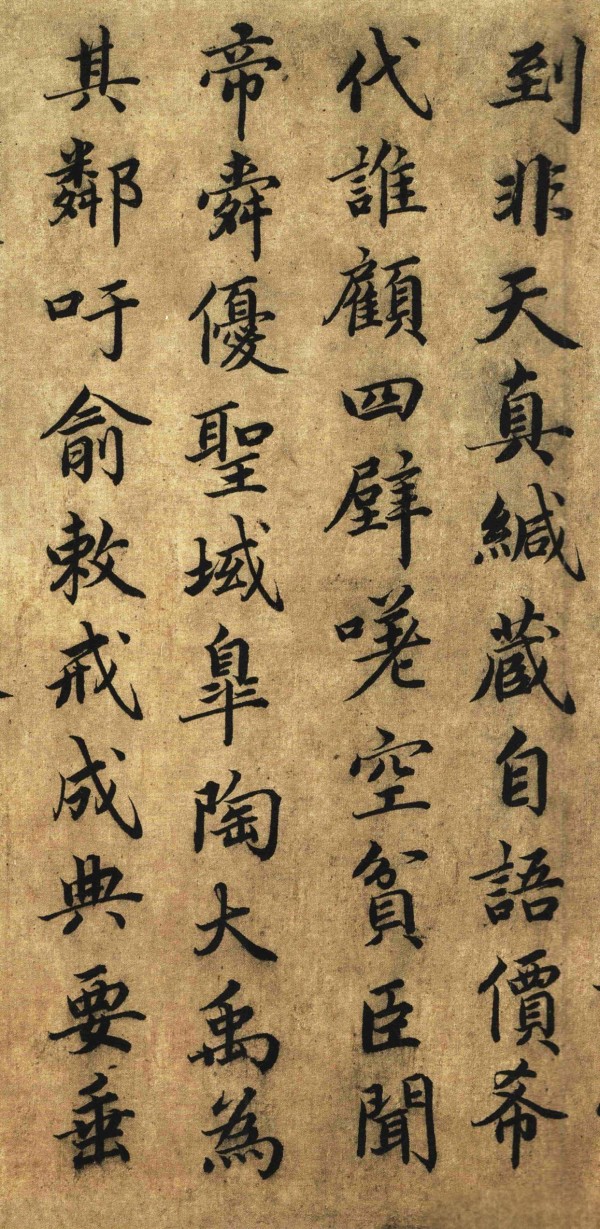 到非天真緘藏自語價希
代誰顧四壁嗟空貧臣聞
帝舜優聖域皋陶大禹為
其鄰吁俞敕戒成典要垂